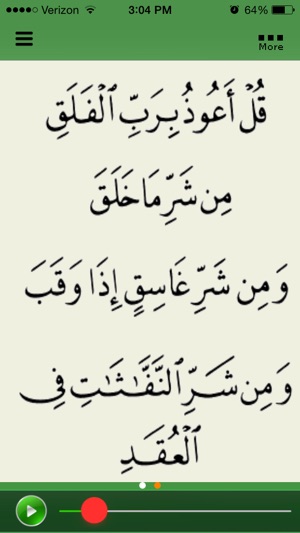 Verizon 3:04 PM 64%
More
قُلْ أَعُوذُ بِرَبِّ ٱلْفَلَقِ
مِن شَرِّ مَا خَلَقَ
وَمِن شَرِّ غَاسِقٍ إِذَا وَقَبَ
وَمِن شَرِّ ٱلنَّفَّـٰثَـٰتِ فِى
ٱلْعُقَدِ